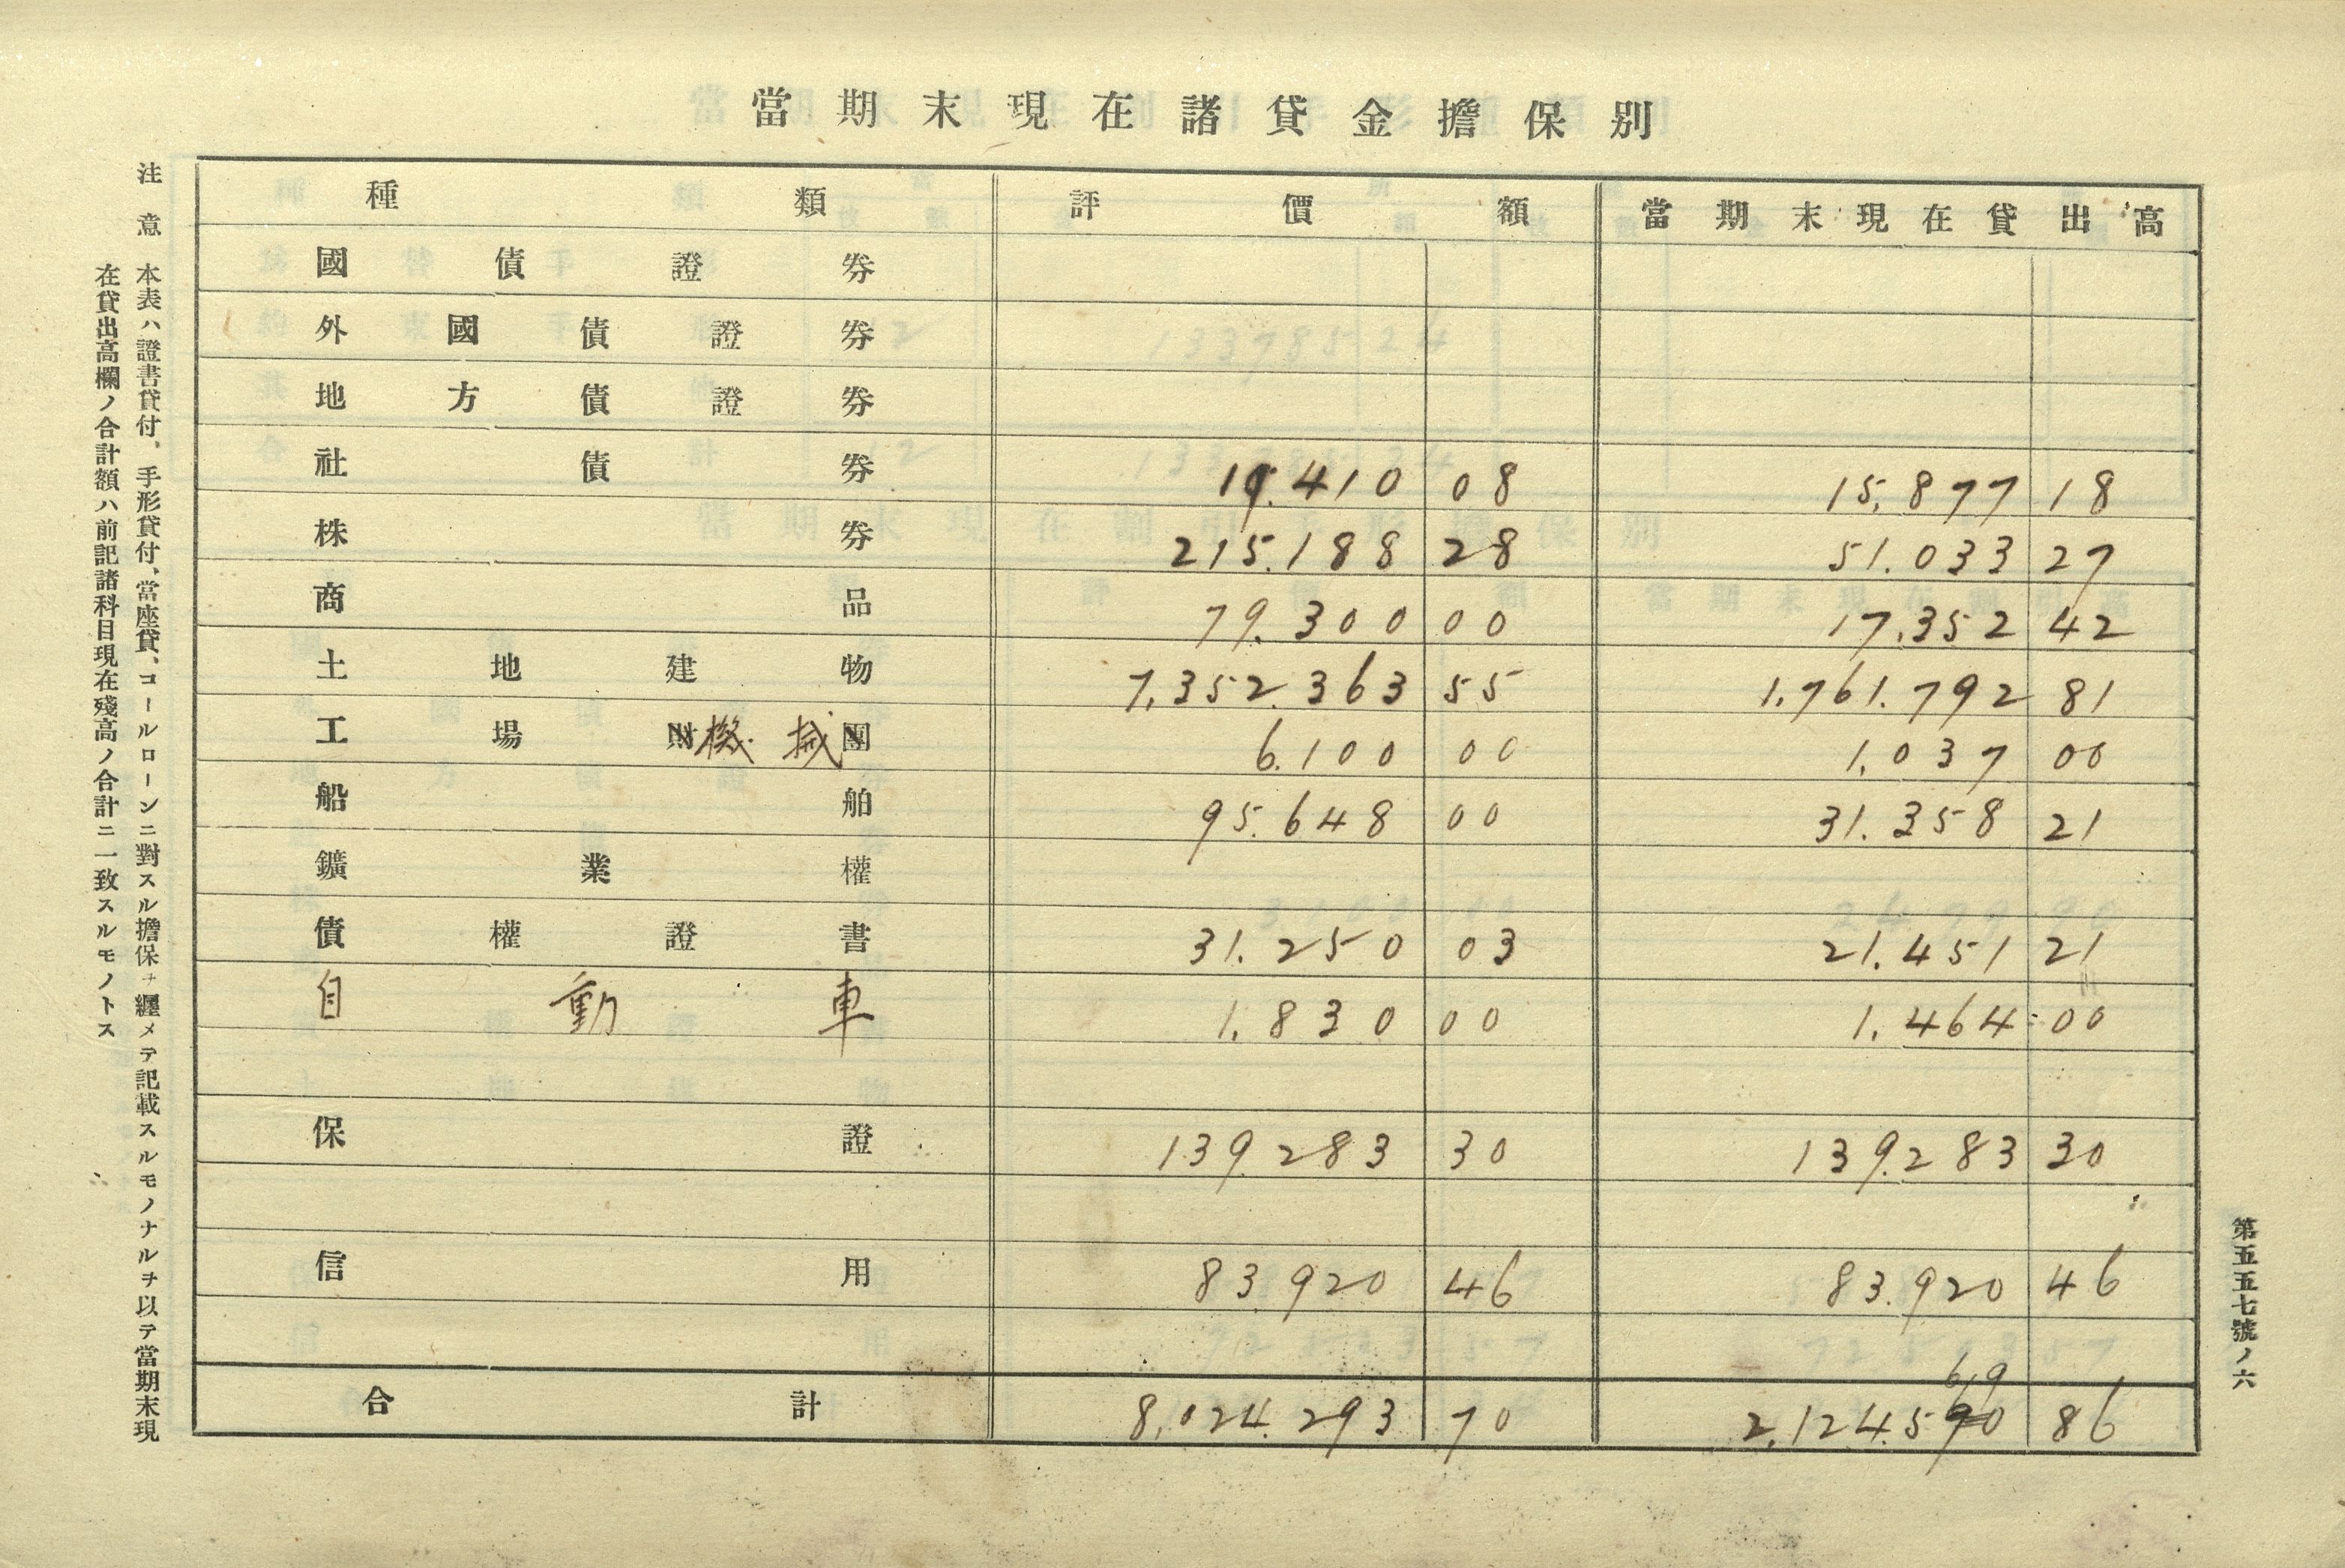 當期末現在諸貸金擔保別
種類 評價額 當期末現在貸出高
國債證券
外國債證券
地方債證券
社債券 19.410 08 15.877 18
株券 215.188 28 51.033 27
商品 79.300 00 17.352 42
土地建物 7.352.363 55 1.761.792 81
工場機械 6.100 00 1.037 00
船舶 95.648 00 31.358 21
鑛業權
債權證書 31.250 03 21.451 21
自動車 1.830 00 1.464 00
保證 139.283 30 139.283 30
信用 83.920 46 83.920 46
合計 8,024.293 70 2,124.569 86
注意 本表ハ證書貸付、手形貸付、當座貸、コールローンニ對スル擔保ヲ纒メテ記載スルモノナルヲ以テ當期末現
在貸出高欄ノ合計額ハ前記諸科目現在殘高ノ合計ニ一致スルモノトス
第五五七號ノ六